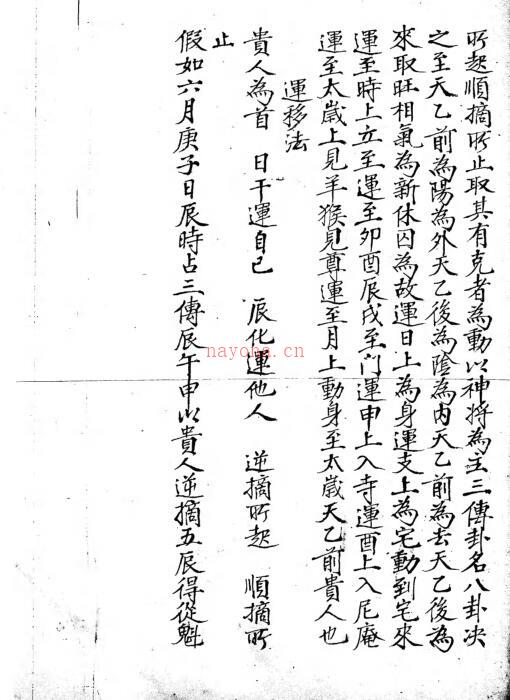 所起順摘所止取其有克者為動以神将為主三傳卦名八卦决
之至天乙前為陽為外天乙後為隂為内天乙前為去天乙後為
來取旺相氣為新休囚為故運日上為身運支上為宅動到宅來
運至時上立至運至卯酉辰戌至门運申上入寺運酉上入尼庵
運至太歲上見羊猴見尊運至月上動身至太歲天乙前貴人也
運移法
貴人為首 日干運自己 辰化運他人 逆摘所起 順摘所
止
假如六月庚子日辰時占三傳辰午申以貴人逆摘五辰得從魁
nayona.cn